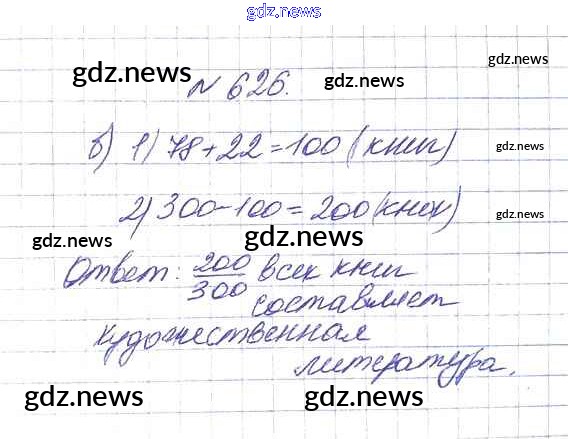 gdz.news
gdz.news
gdz.news
gdz.news
№ 626.
б) 1) 78+22=100 (книг)
gdz.news
2) 300-100=200 (книг)
gdz.news
gdz.news
gdz.news
Ответ: 200/300 всех книг
составляет
художественная
литература.
gdz.news
gdz.news